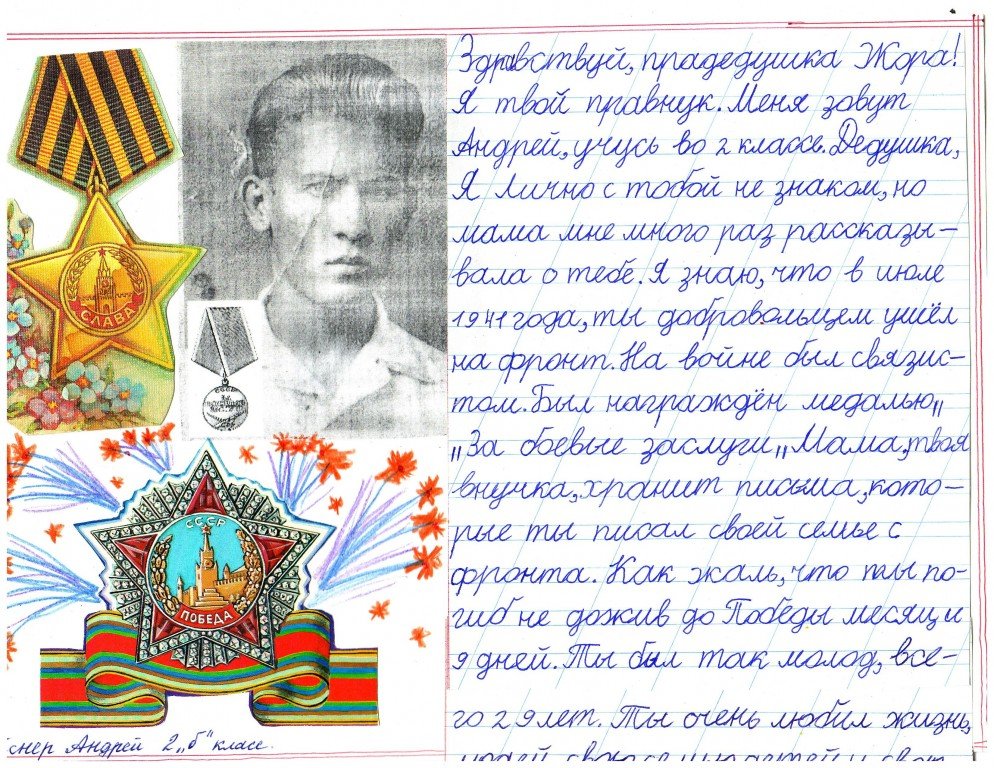 СЛАВА
СССР
ПОБЕДА
Андрей 2 „б" класс.
Здравствуй, прадедушка Жора!
Я твой правнук. Меня зовут
Андрей, учусь во 2 классе. Дедушка,
Я лично с тобой не знаком, но
мама мне много раз рассказы-
вала о тебе. Я знаю, что в июле
1941 года, ты добровольцем ушёл
на фронт. На войне был связис-
том. Был награждён медалью„
„За боевые заслуги„ Мама, твоя
внучка, хранит письма, кото-
рые ты писал своей семье с
фронта. Как жаль, что ты по-
гиб не дожив до Победы месяц и
9 дней. Ты был так молод, все-
го 29 лет. Ты очень любил жизнь,